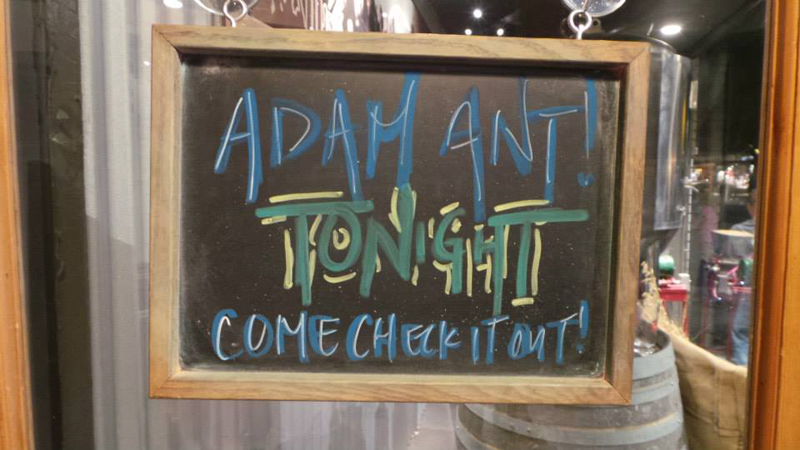 ADAM ANT!
TONIGHT
COME CHECK IT OUT!